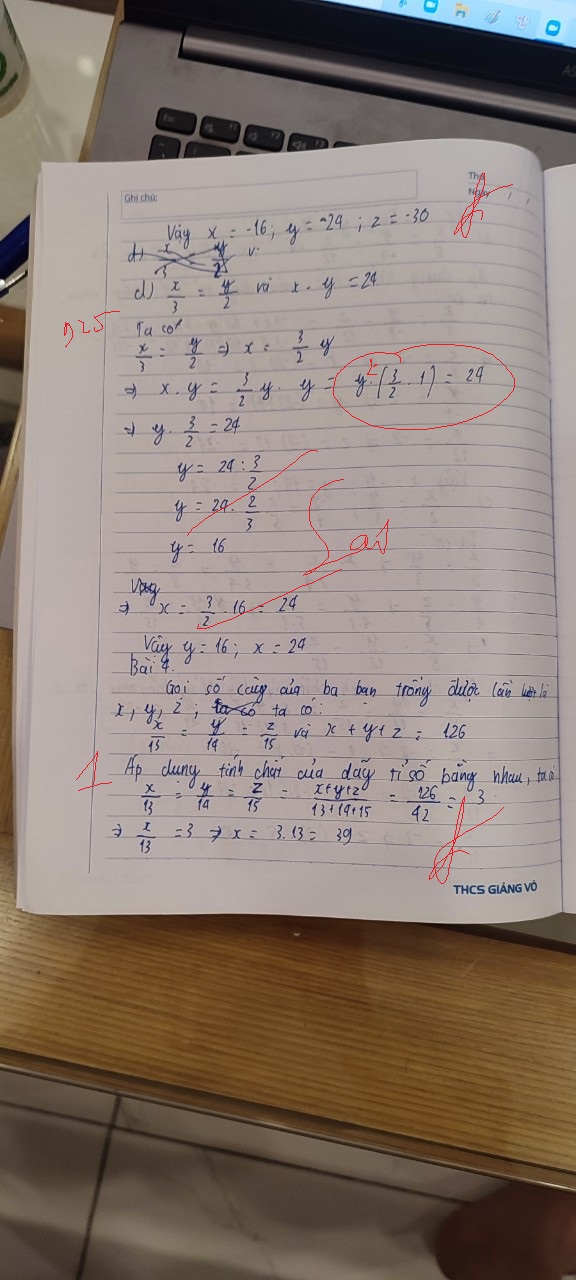 Ghi chú:
Thứ
Ngày
Vậy x = -16; y = -24; z = -30
d) x/3 y/2
d) x/3 = y/2 và x . y = 24
Ta có
x/3 = y/2 => x = 3/2 y
=> x . y = 3/2 y . y = y² . (3/2 . 1) = 24
=> y . 3/2 = 24
y = 24 : 3/2
y = 24 . 2/3
y = 16
sai
=> x = 3/2 . 16 = 24
Vậy y = 16; x = 24
Bài 4.
Gọi số cây của ba bạn trồng được lần lượt là
x, y, z; ta có ta có:
x/13 = y/14 = z/15 và x + y + z = 126
1 Áp dụng tính chất của dãy tỉ số bằng nhau, ta có
x/13 = y/14 = z/15 = x+y+z/13+14+15 = 126/42 = 3
=> x/13 = 3 => x = 3.13 = 39
THCS GIẢNG VÕ